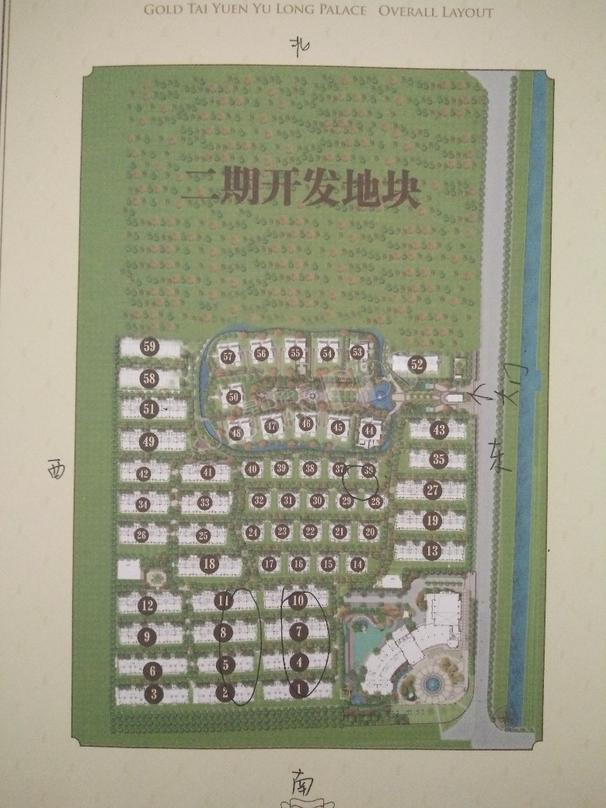 GOLD TAI YUEN YU LONG PALACE OVERALL LAYOUT
北
二期开发地块
59
57 56 55 54 53
52
58
50
大门
51
48 47 46 45 44
43
49
东
西
42 41 40 39 38 37 36
35
34 33 32 31 30 29 28
27
26 25 24 23 22 21 20
19
18 17 16 15 14
13
12 11 10
9 8 7
6 5 4
3 2 1
南